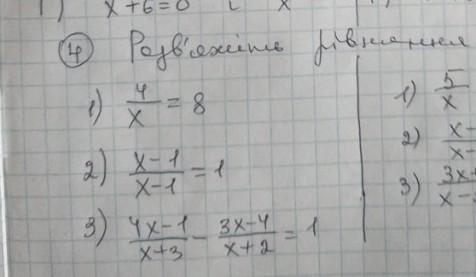 1) x+6=0 x
4 Розв'яжіть рівняння
1) 4/x = 8
2) x-1/x-1 = 1
3) 4x-1/x+3 - 3x-4/x+2 = 1
1) 5/x
2) x-/x-
3) 3x+/x-